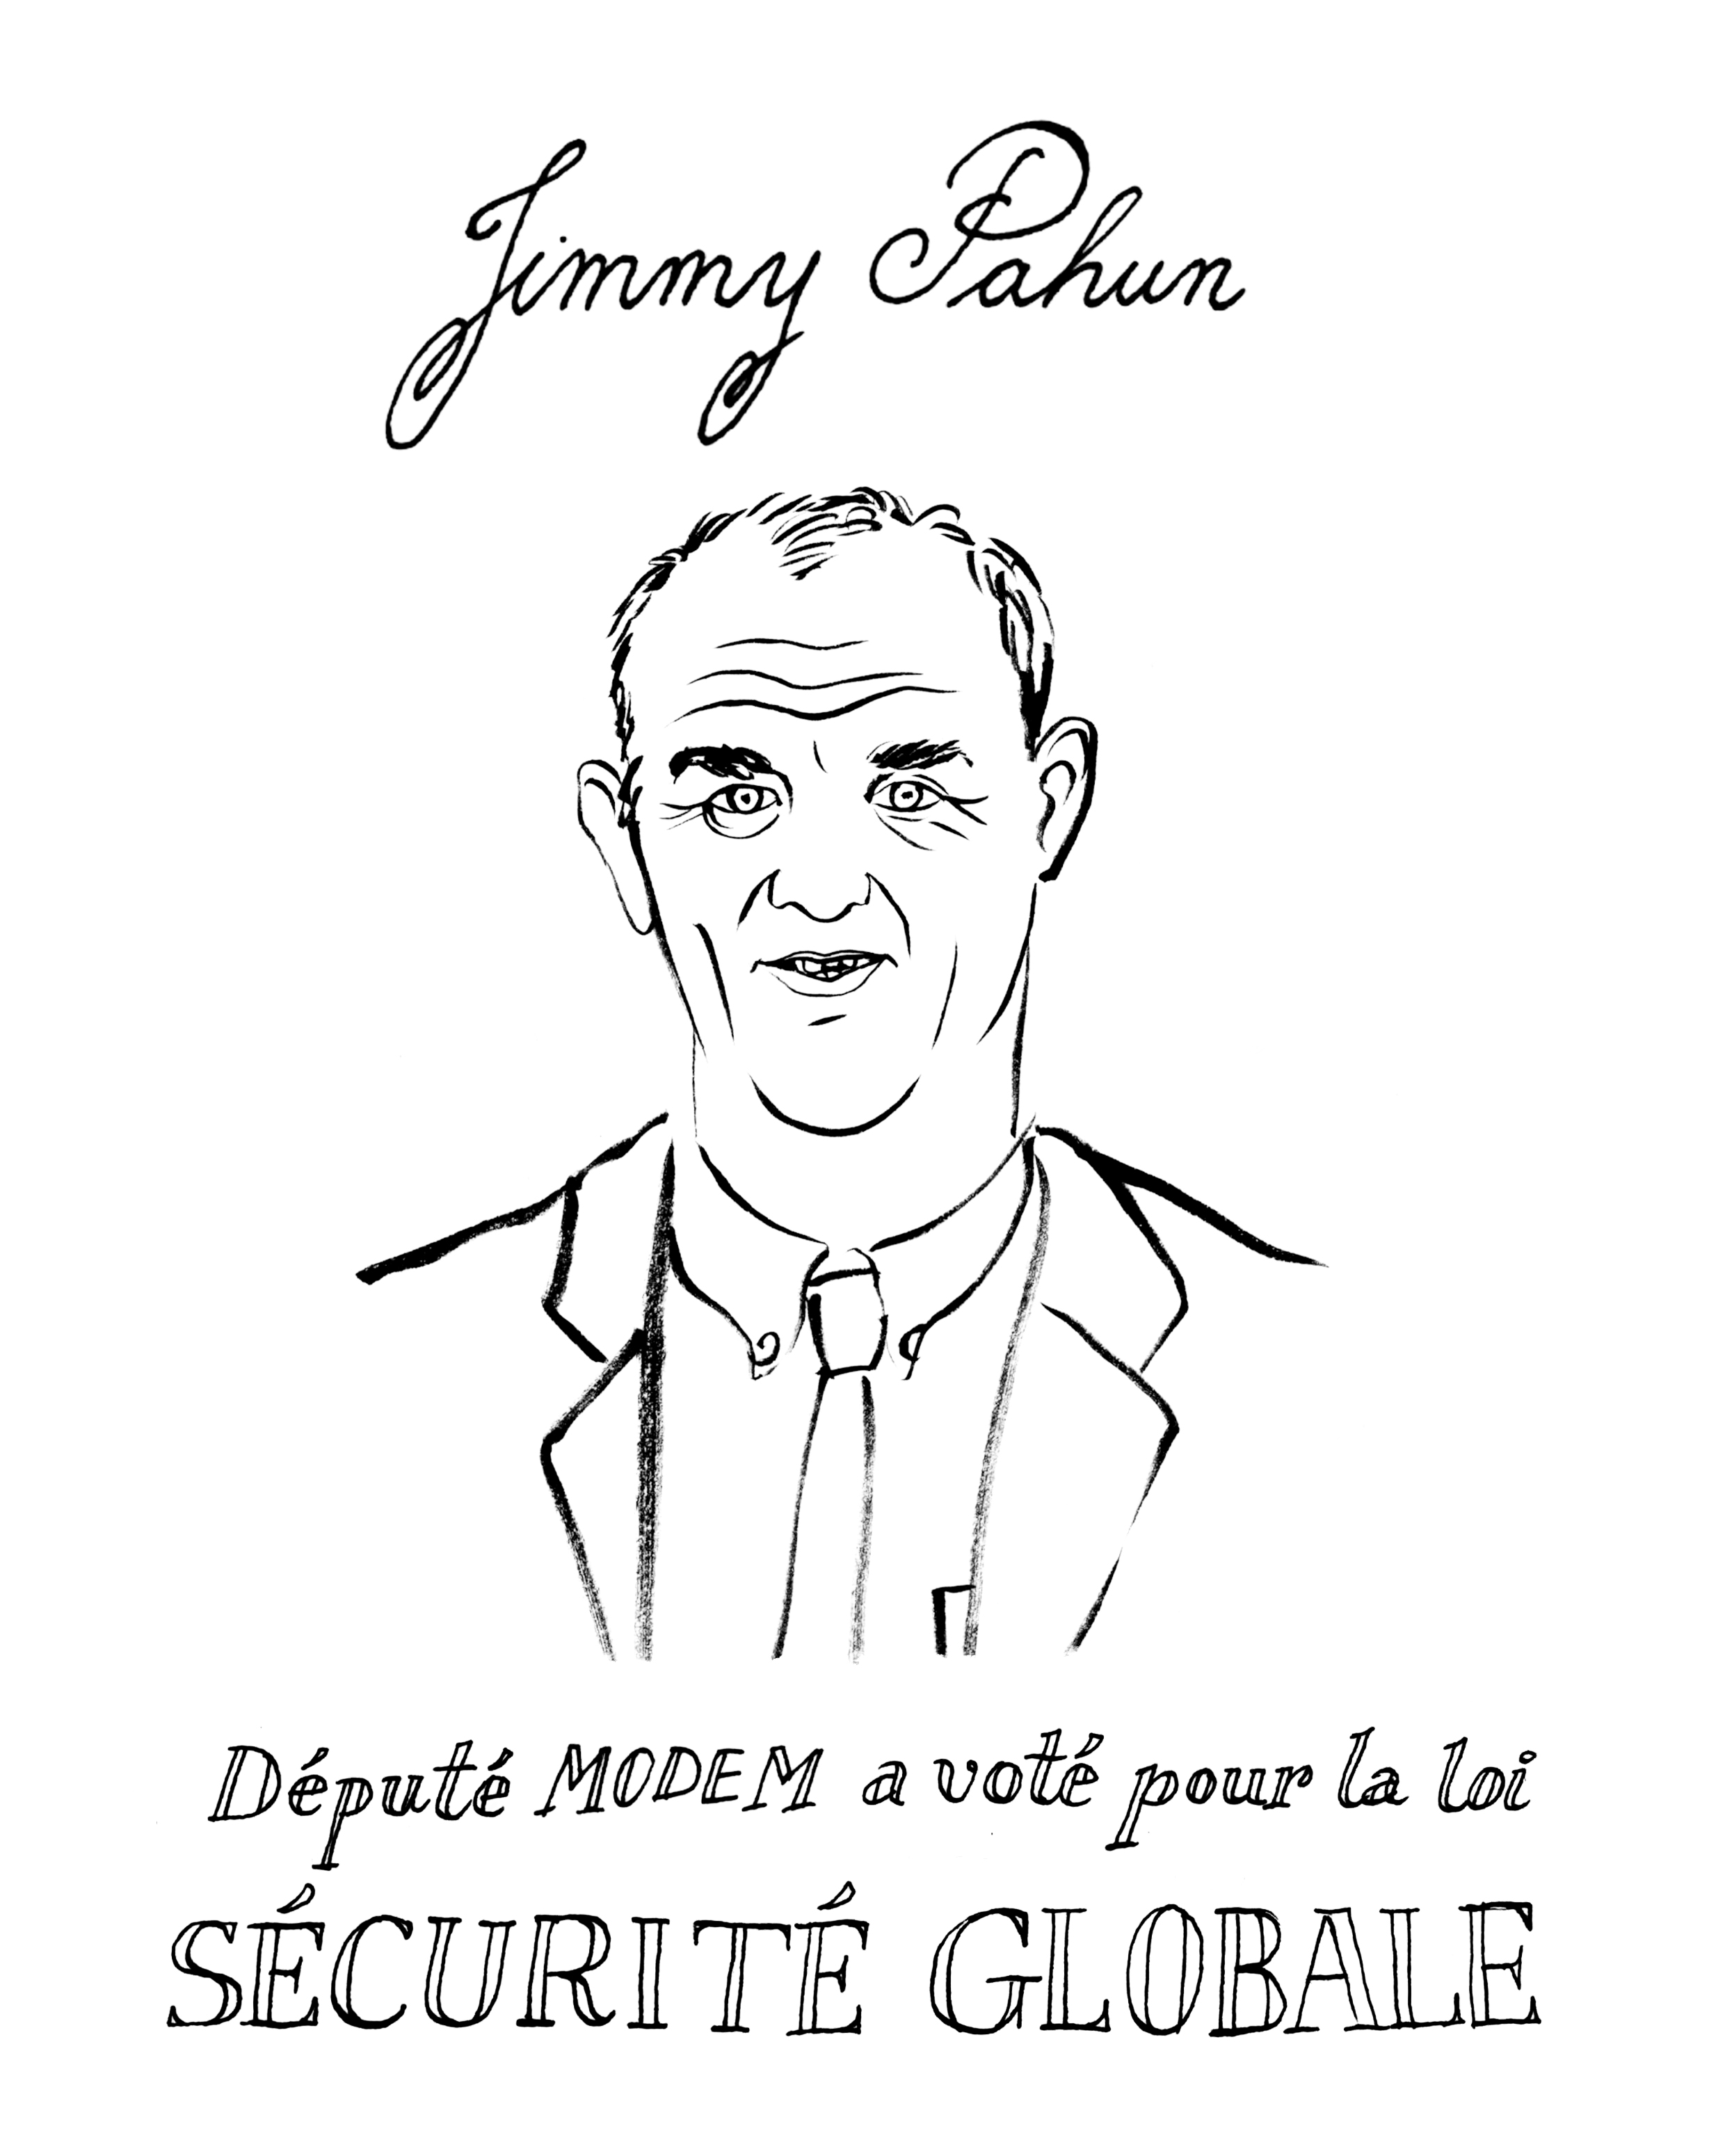 Jimmy Pahun
Député MODEM a voté pour la loi
SÉCURITÉ GLOBALE